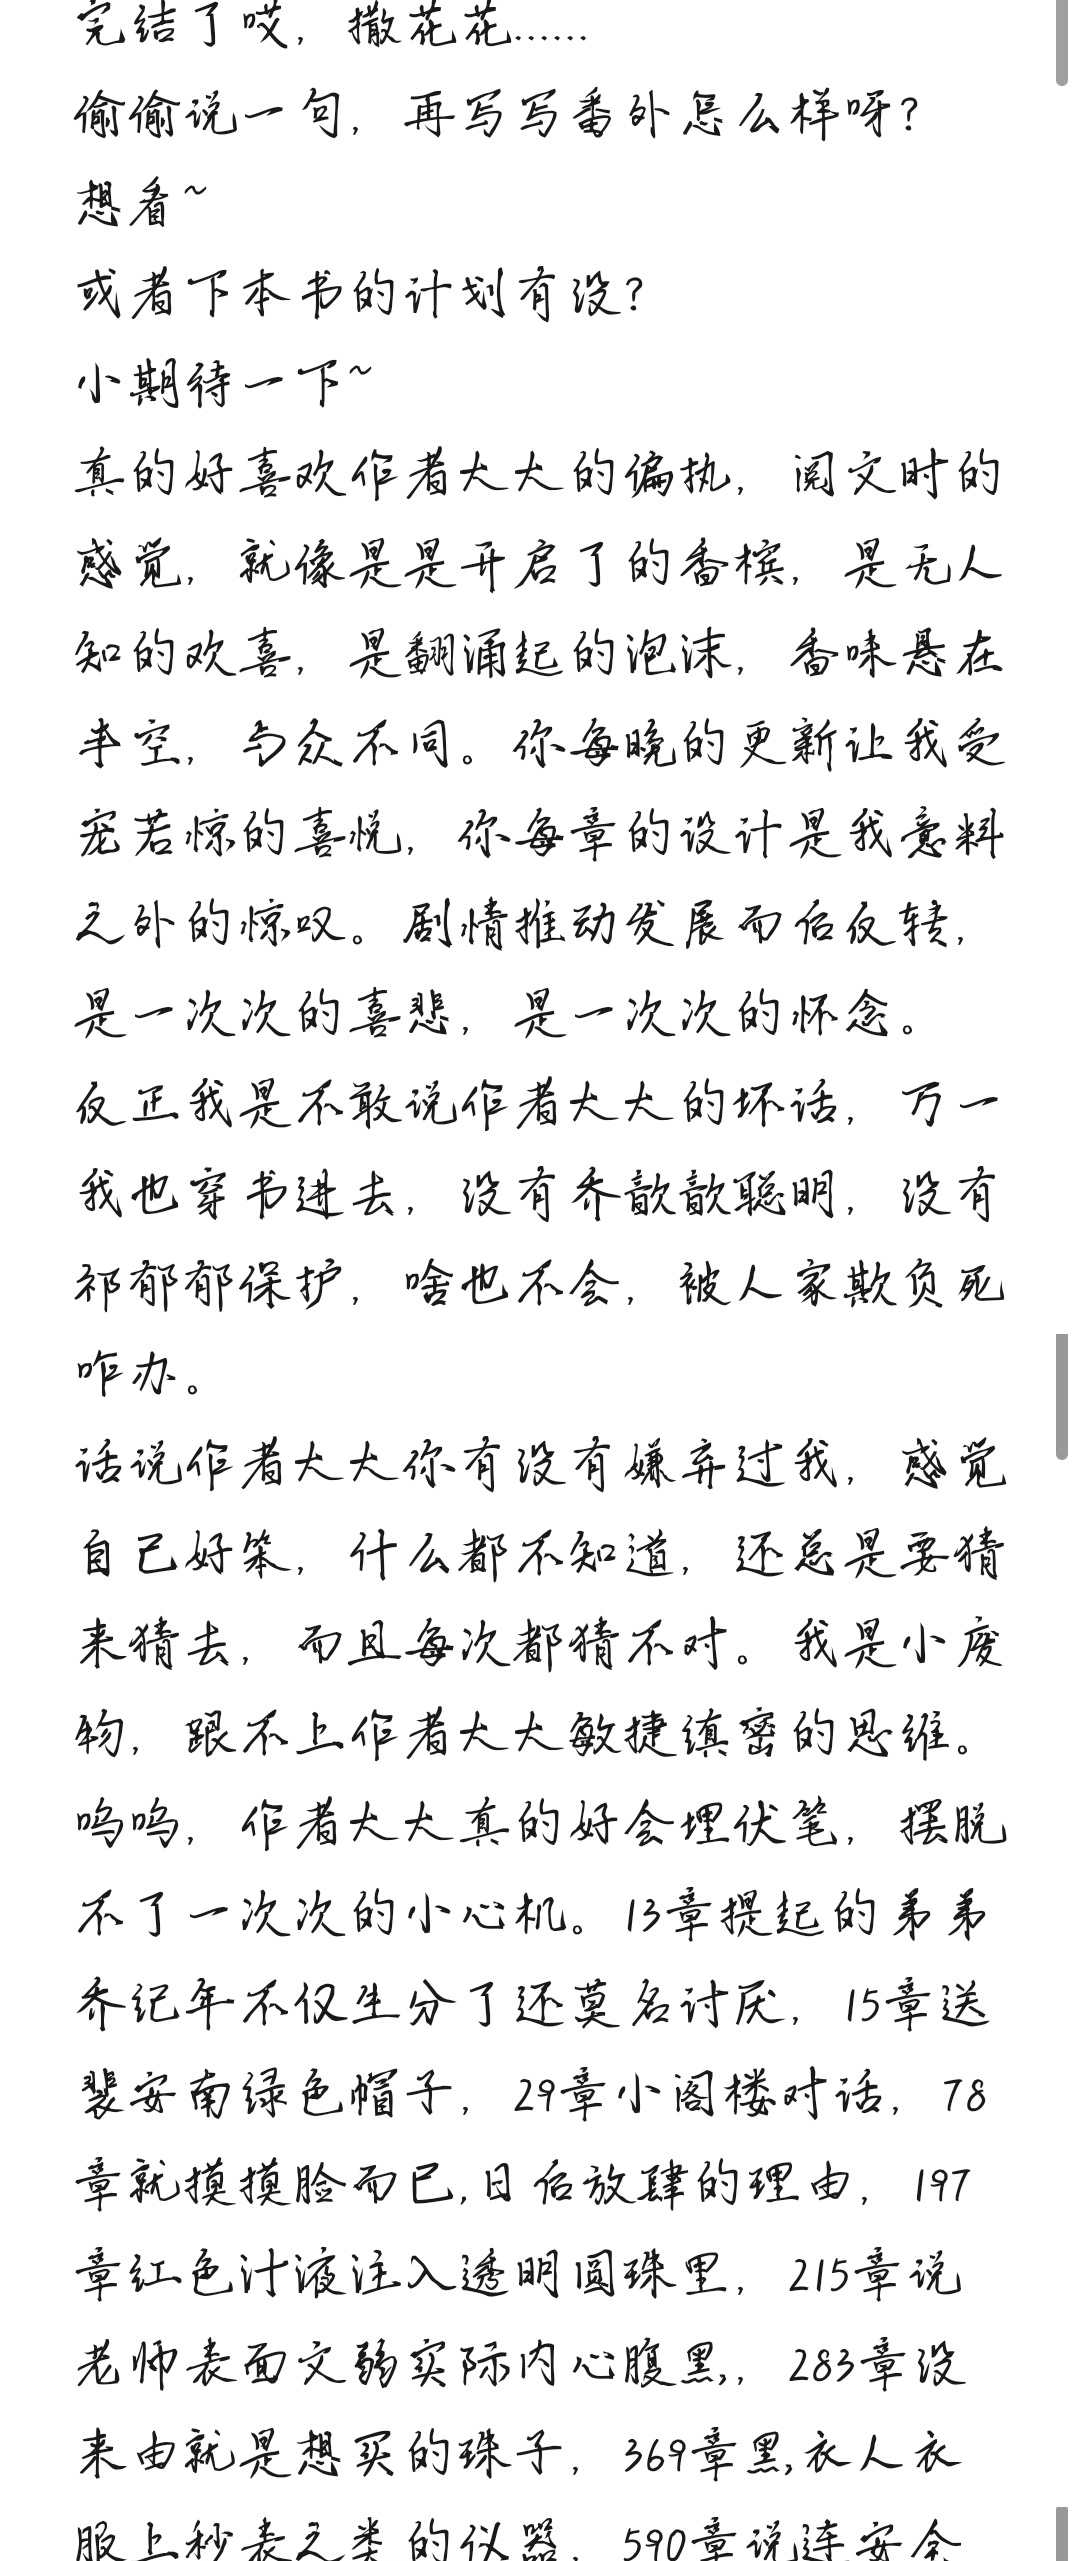 完结了哎，撒花花……
偷偷说一句，再写写番外怎么样呀？
想看~
或者下本书的计划有没？
小期待一下~
真的好喜欢作者大大的偏执，阅文时的
感觉，就像是是开启了的香槟，是无人
知的欢喜，是翻涌起的泡沫，香味悬在
半空，与众不同。你每晚的更新让我受
宠若惊的喜悦，你每章的设计是我意料
之外的惊叹。剧情推动发展而后反转，
是一次次的喜悲，是一次次的怀念。
反正我是不敢说作者大大的坏话，万一
我也穿书进去，没有乔歆歆聪明，没有
祁郁郁保护，啥也不会，被人家欺负死
咋办。
话说作者大大你有没有嫌弃过我，感觉
自己好笨，什么都不知道，还总是要猜
来猜去，而且每次都猜不对。我是小废
物，跟不上作者大大敏捷缜密的思维。
呜呜，作者大大真的好会埋伏笔，摆脱
不了一次次的小心机。13章提起的弟弟
乔纪年不仅生分了还莫名讨厌，15章送
裴安南绿色帽子，29章小阁楼对话，78
章就摸摸脸而已,日后放肆的理由，197
章红色汁液注入透明圆珠里，215章说
老师表面文弱实际内心腹黑,，283章没
来由就是想买的珠子，369章黑,衣人衣
服上秒表之类的仪器，590章说连安余